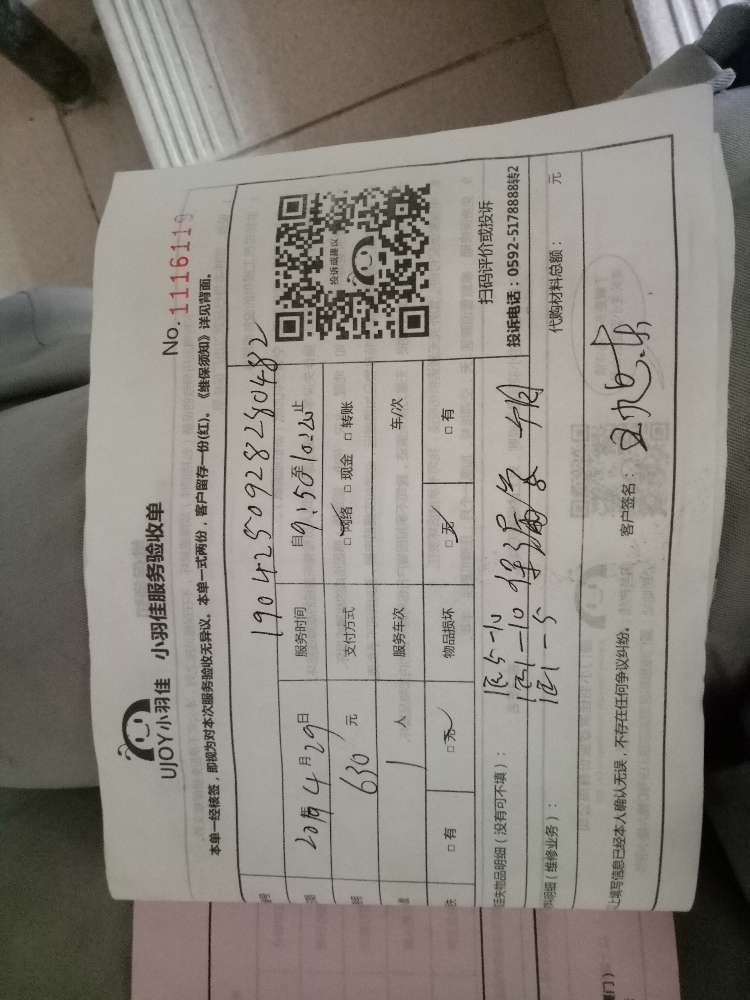 UJOY小羽佳 小羽佳服务验收单
No. 1116119
本单一经核签，即视为对本次服务验收无异议。本单一式两份，客户留存一份(红)。《维保须知》详见背面。
号 190425092828280482
2019年4月29日 服务时间 自9:50至10:20止
630元 支付方式 □网络 □现金 □转账
1人 服务车次 车/次
□有 □无 物品损坏 □无 □有
投诉或建议
扫码评价或投诉
投诉电话：0592-5178888转2
丢失物品明细（没有可不填）：
明细（维修业务）：
代购材料总额： 元
上填写信息已经本人确认无误，不存在任何争议纠纷。 客户签名：